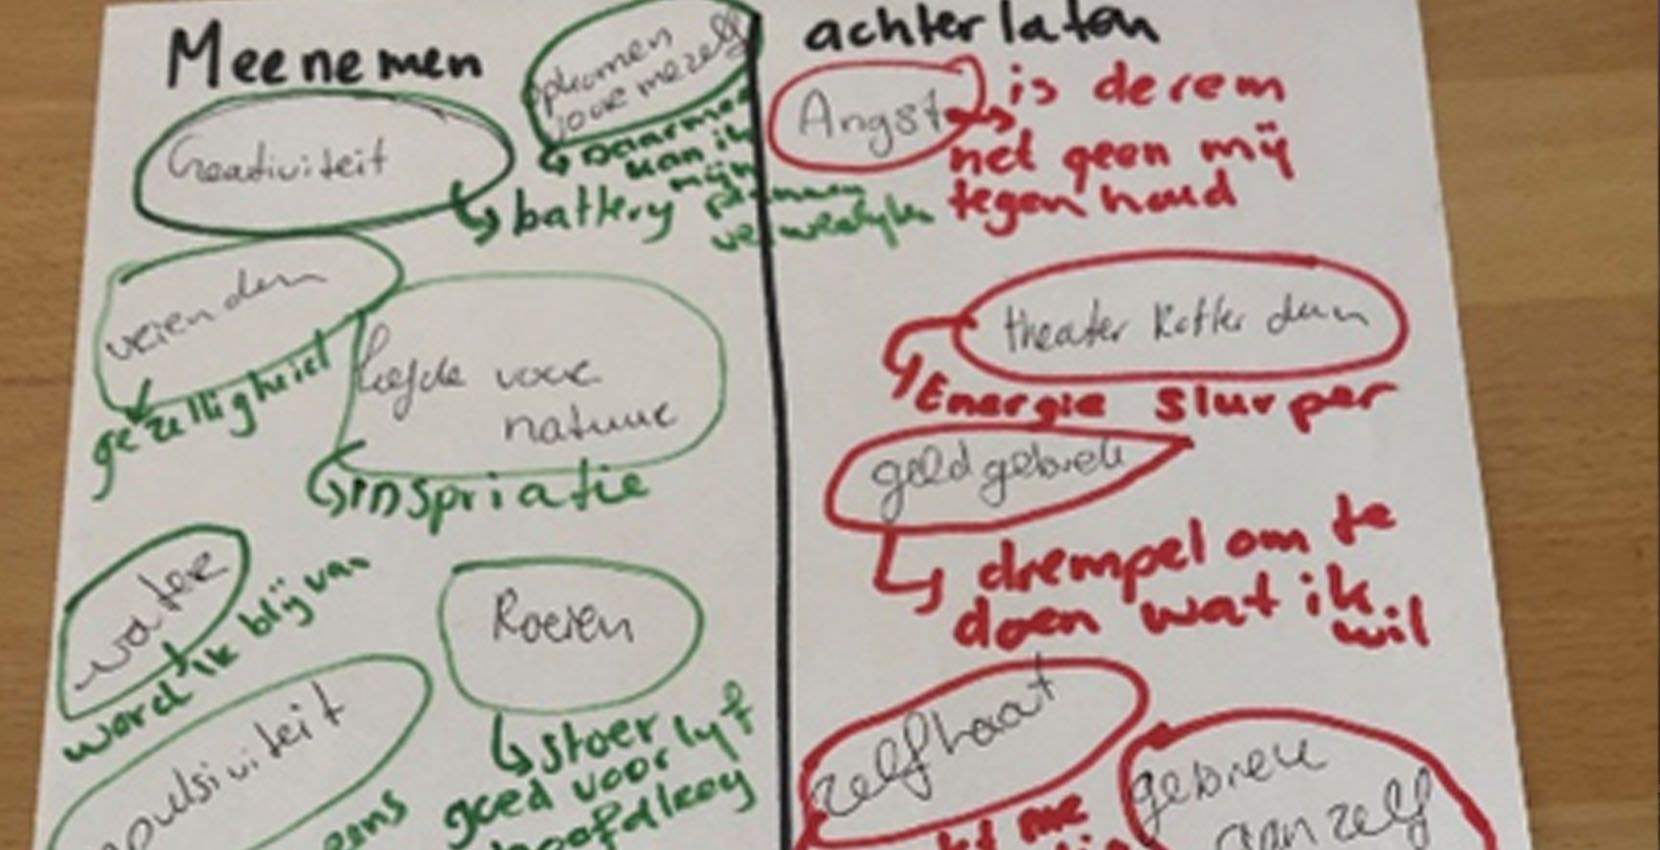 Meenemen
opkomen
voor mezelf
↳ Daarmee
kan ik
mijn
plannen
verwezelijken
Creativiteit
↳ battery
vrienden
gezelligheid
liefde voor
natuur
↳ inspriatie
water
word ik blij van
Roeien
↳ stoer
goed voor lyf
hoofd leeg
impulsiviteit
eens
achterlaten
Angst → is de rem
net geen mij
tegen houd
theater Rotterdam
Energie slurper
geld gebrek
↳ drempel om te
doen wat ik
wil
zelfhaat
me
gebrek
aan zelf